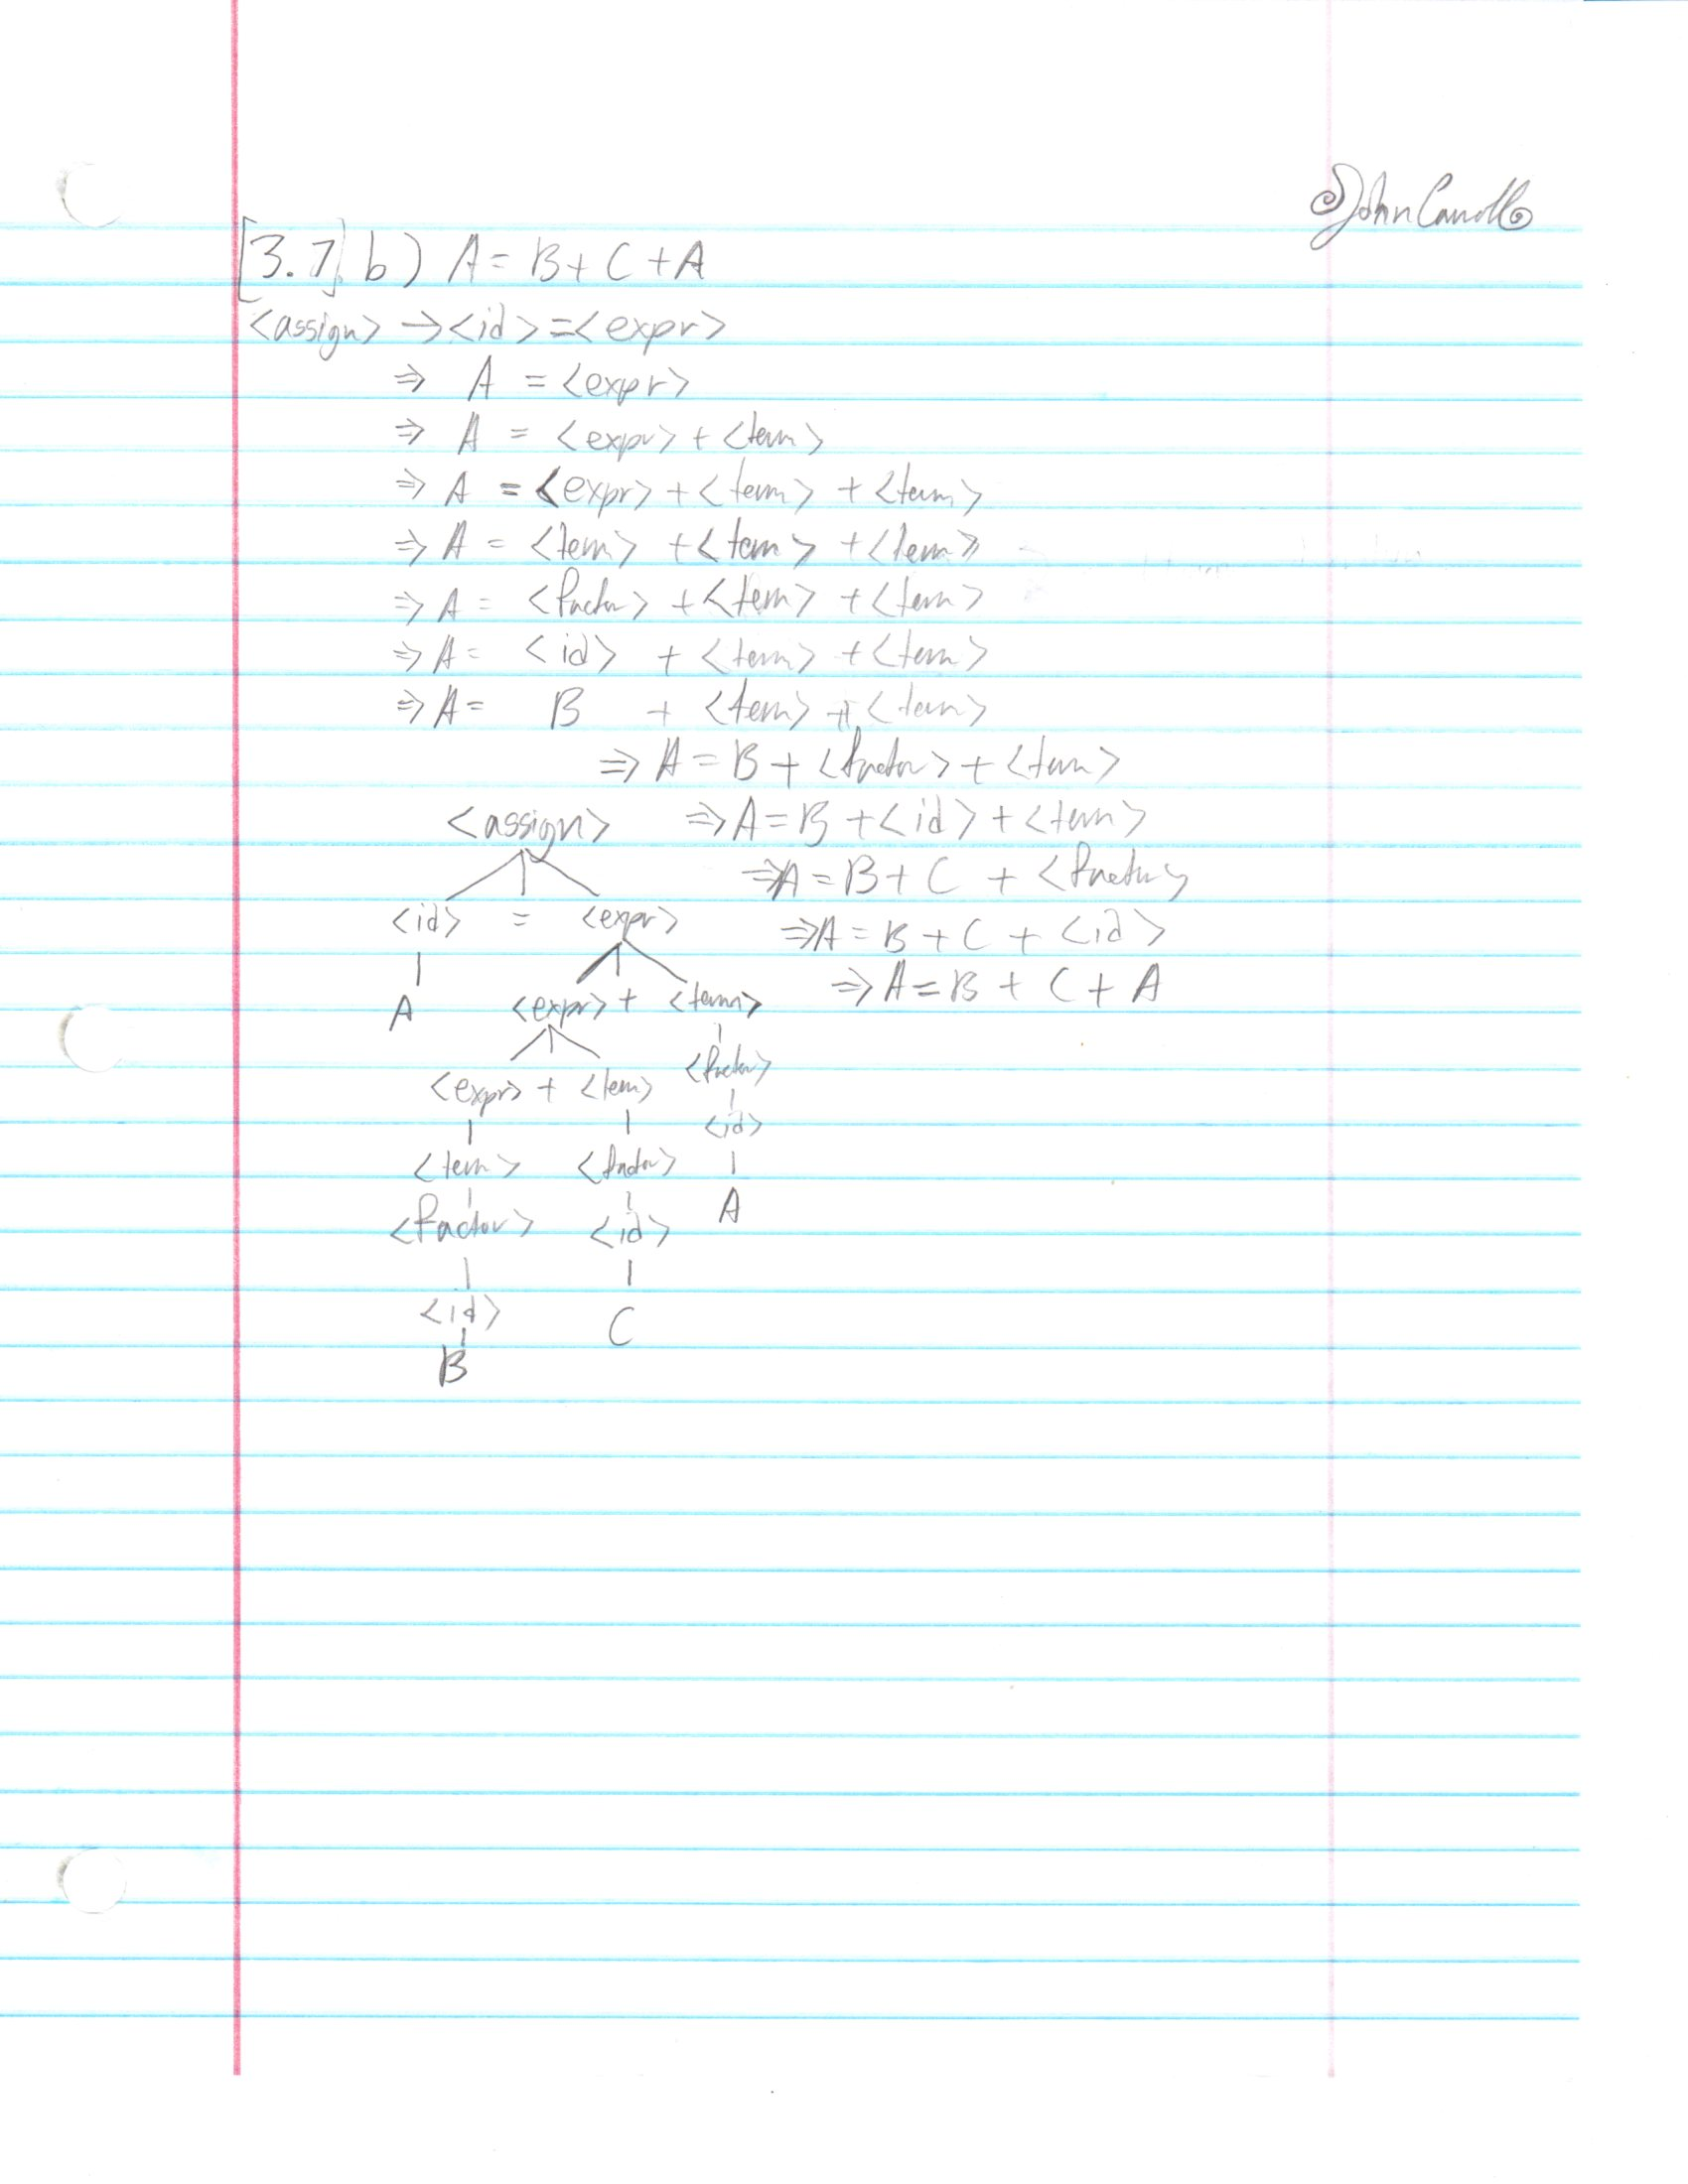 John Carroll
[3.7] b) A = B + C + A
<assign> → <id> = <expr>
⇒ A = <expr>
⇒ A = <expr> + <term>
⇒ A = <expr> + <term> + <term>
⇒ A = <term> + <term> + <term>
⇒ A = <factor> + <term> + <term>
⇒ A = <id> + <term> + <term>
⇒ A = B + <term> + <term>
⇒ A = B + <factor> + <term>
⇒ A = B + <id> + <term>
⇒ A = B + C + <factor>
⇒ A = B + C + <id>
⇒ A = B + C + A
<assign>
<id> = <expr>
A <expr> + <term>
<expr> + <term> <factor>
<id>
<term> <factor> A
<factor> <id>
<id> C
B